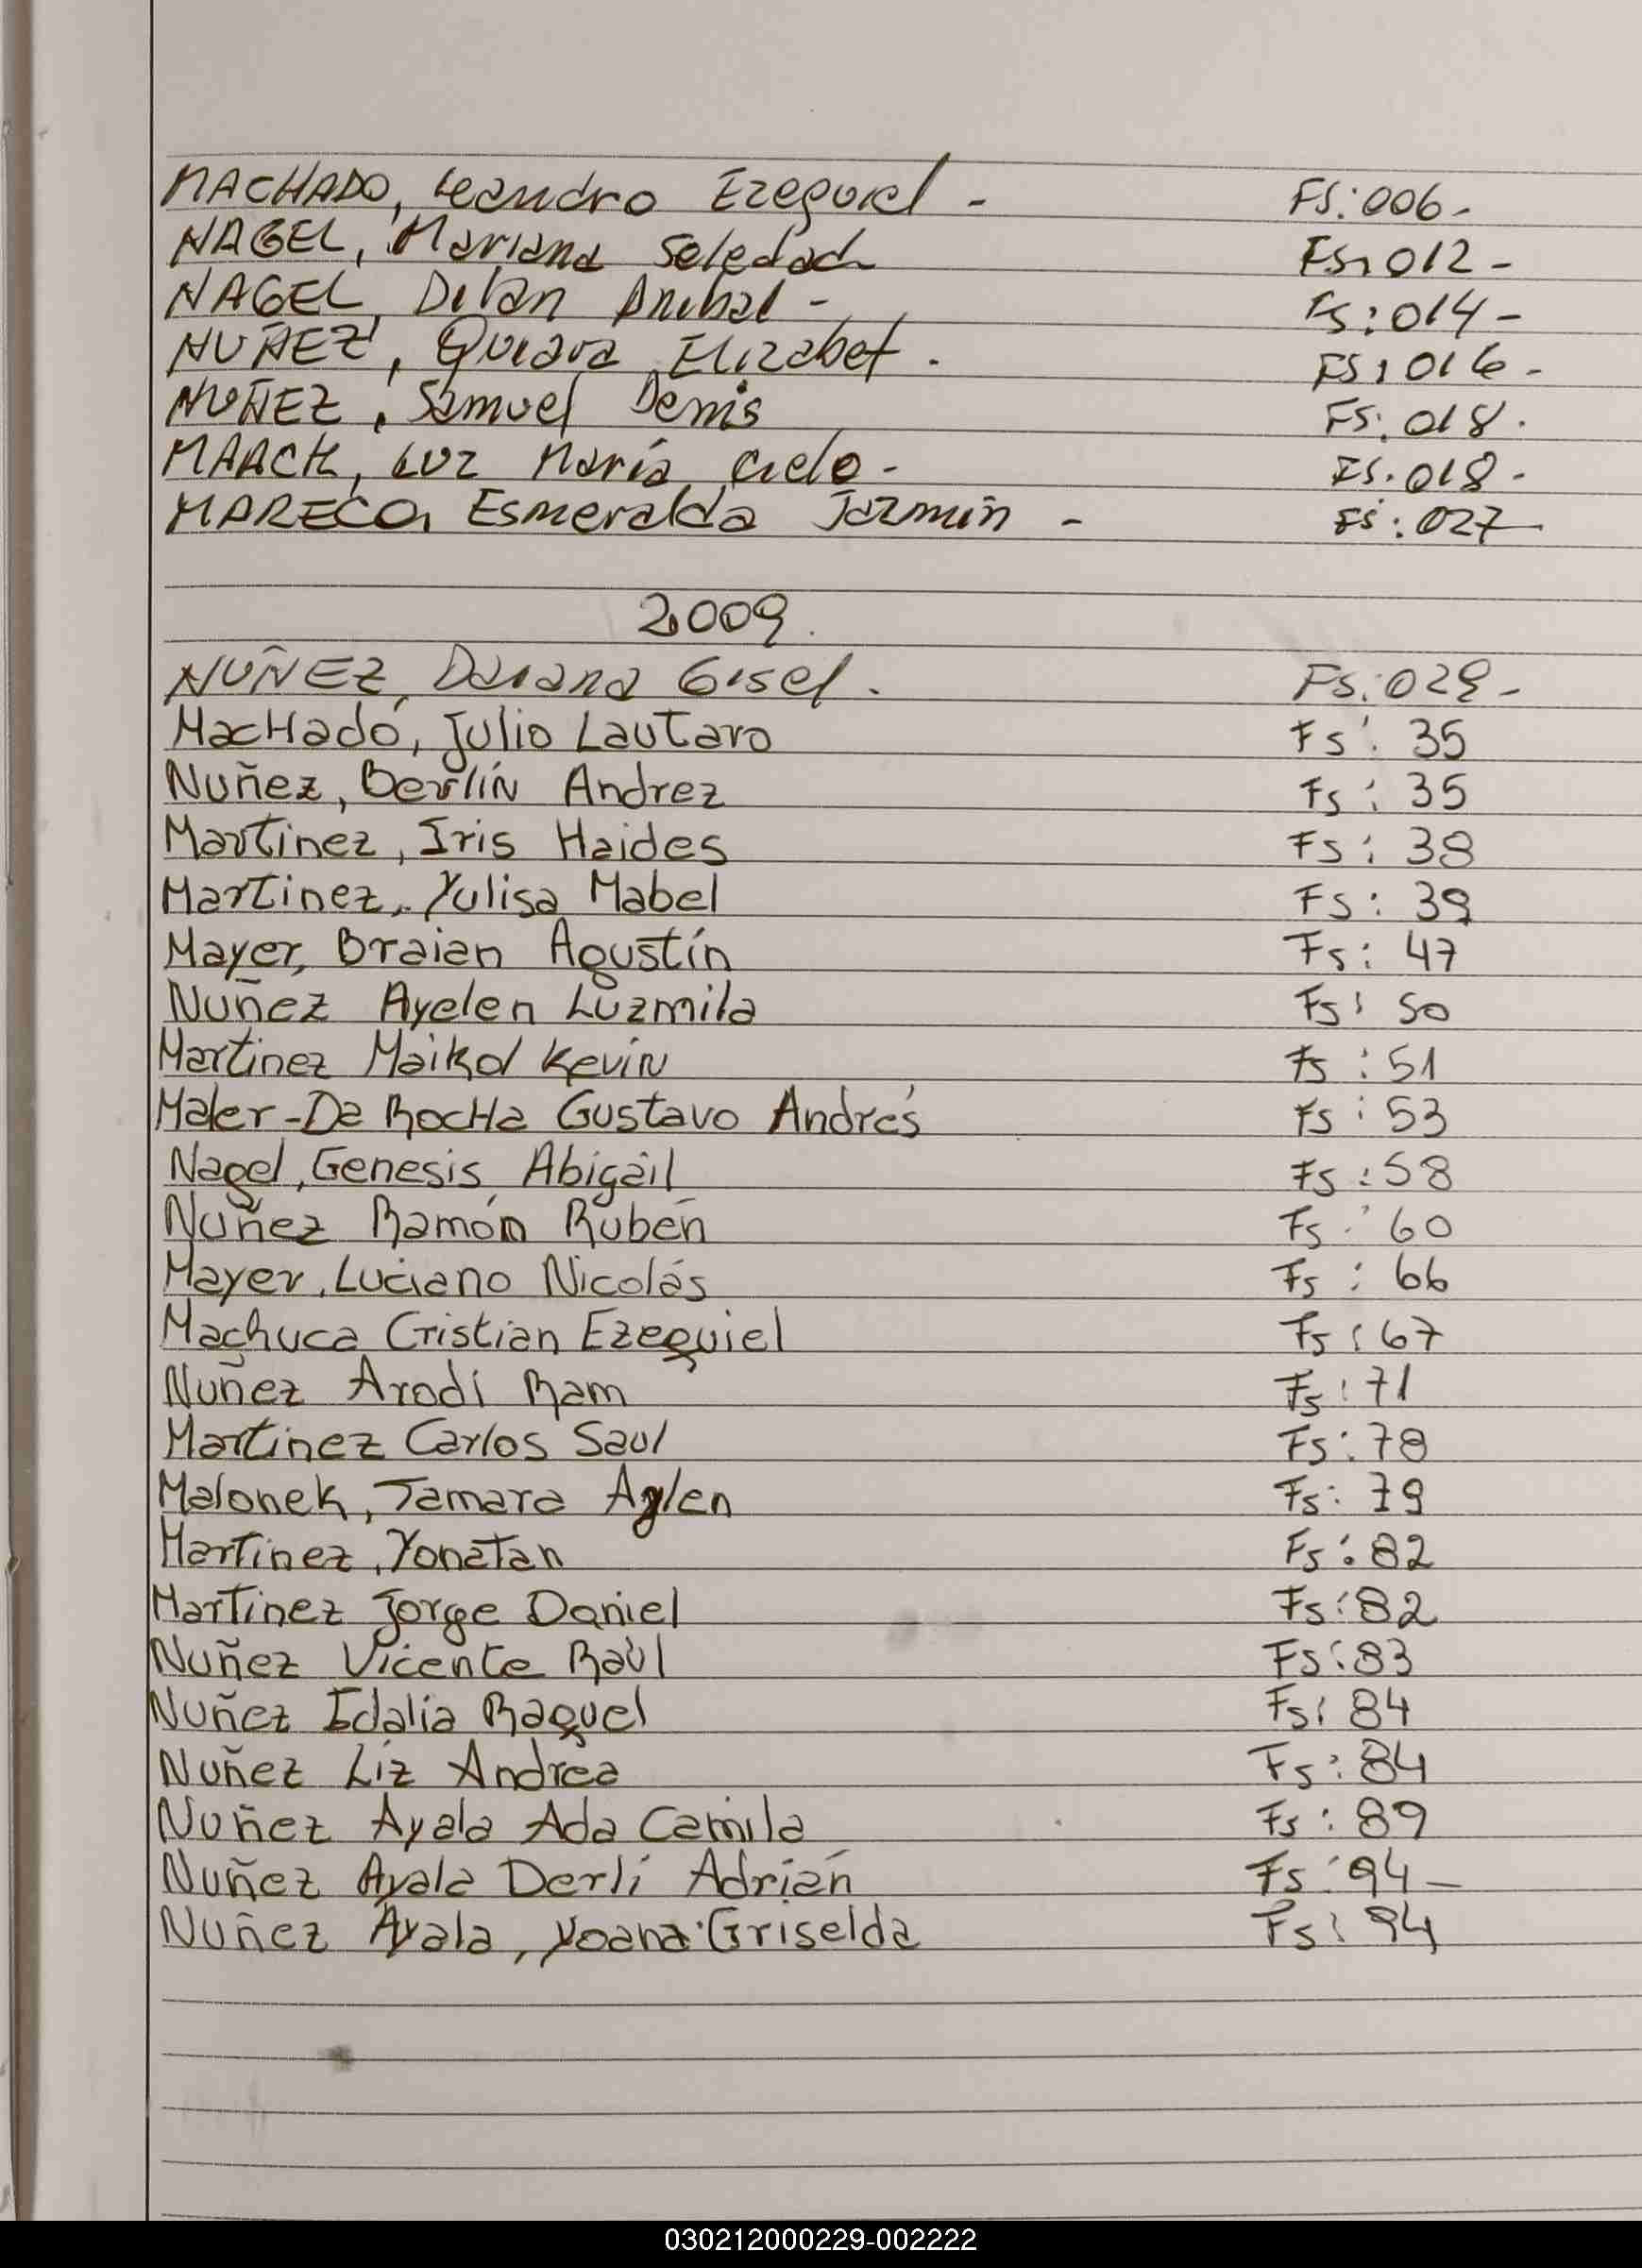 MACHADO, Leandro Ezequiel - FS: 006 -
NAGEL, Mariana Soledad FS: 012 -
NAGEL, Dilan Anibal - FS: 014 -
NUÑEZ, Quiara Elizabet. FS: 016 -
NUÑEZ, Samuel Denis FS: 018.
MAACK, Luz María Cielo - FS: 018 -
MARECO, Esmeralda Jazmín - FS: 027 -
2009.
NUÑEZ, Daiana Gisel. FS: 029 -
MacHado, Julio Lautaro Fs: 35
Nuñez, Berlín Andrez Fs: 35
Martinez, Iris Haides Fs: 38
Martinez, Yulisa Mabel Fs: 39
Mayer, Braian Agustín Fs: 47
Nuñez Ayelen Luzmila Fs: 50
Martinez Maikol Kevin Fs: 51
Maler-Da RocHa Gustavo Andrés Fs: 53
Nagel, Genesis Abigail Fs: 58
Nuñez Ramón Rubén Fs: 60
Mayer, Luciano Nicolás Fs: 66
Machuca Cristian Ezequiel Fs: 67
Nuñez Arodi Ram Fs: 71
Martinez Carlos Saul Fs: 78
Malonek, Tamara Aylen Fs: 79
Martinez, Yonatan Fs: 82
Martinez Jorge Daniel Fs: 82
Nuñez Vicente Raúl Fs: 83
Nuñez Idalia Raquel Fs: 84
Nuñez Liz Andrea Fs: 84
Nuñez Ayala Ada Camila Fs: 89
Nuñez Ayala Derli Adrián Fs: 94 -
Nuñez Ayala, Yoana Griselda Fs: 94
030212000229-002222